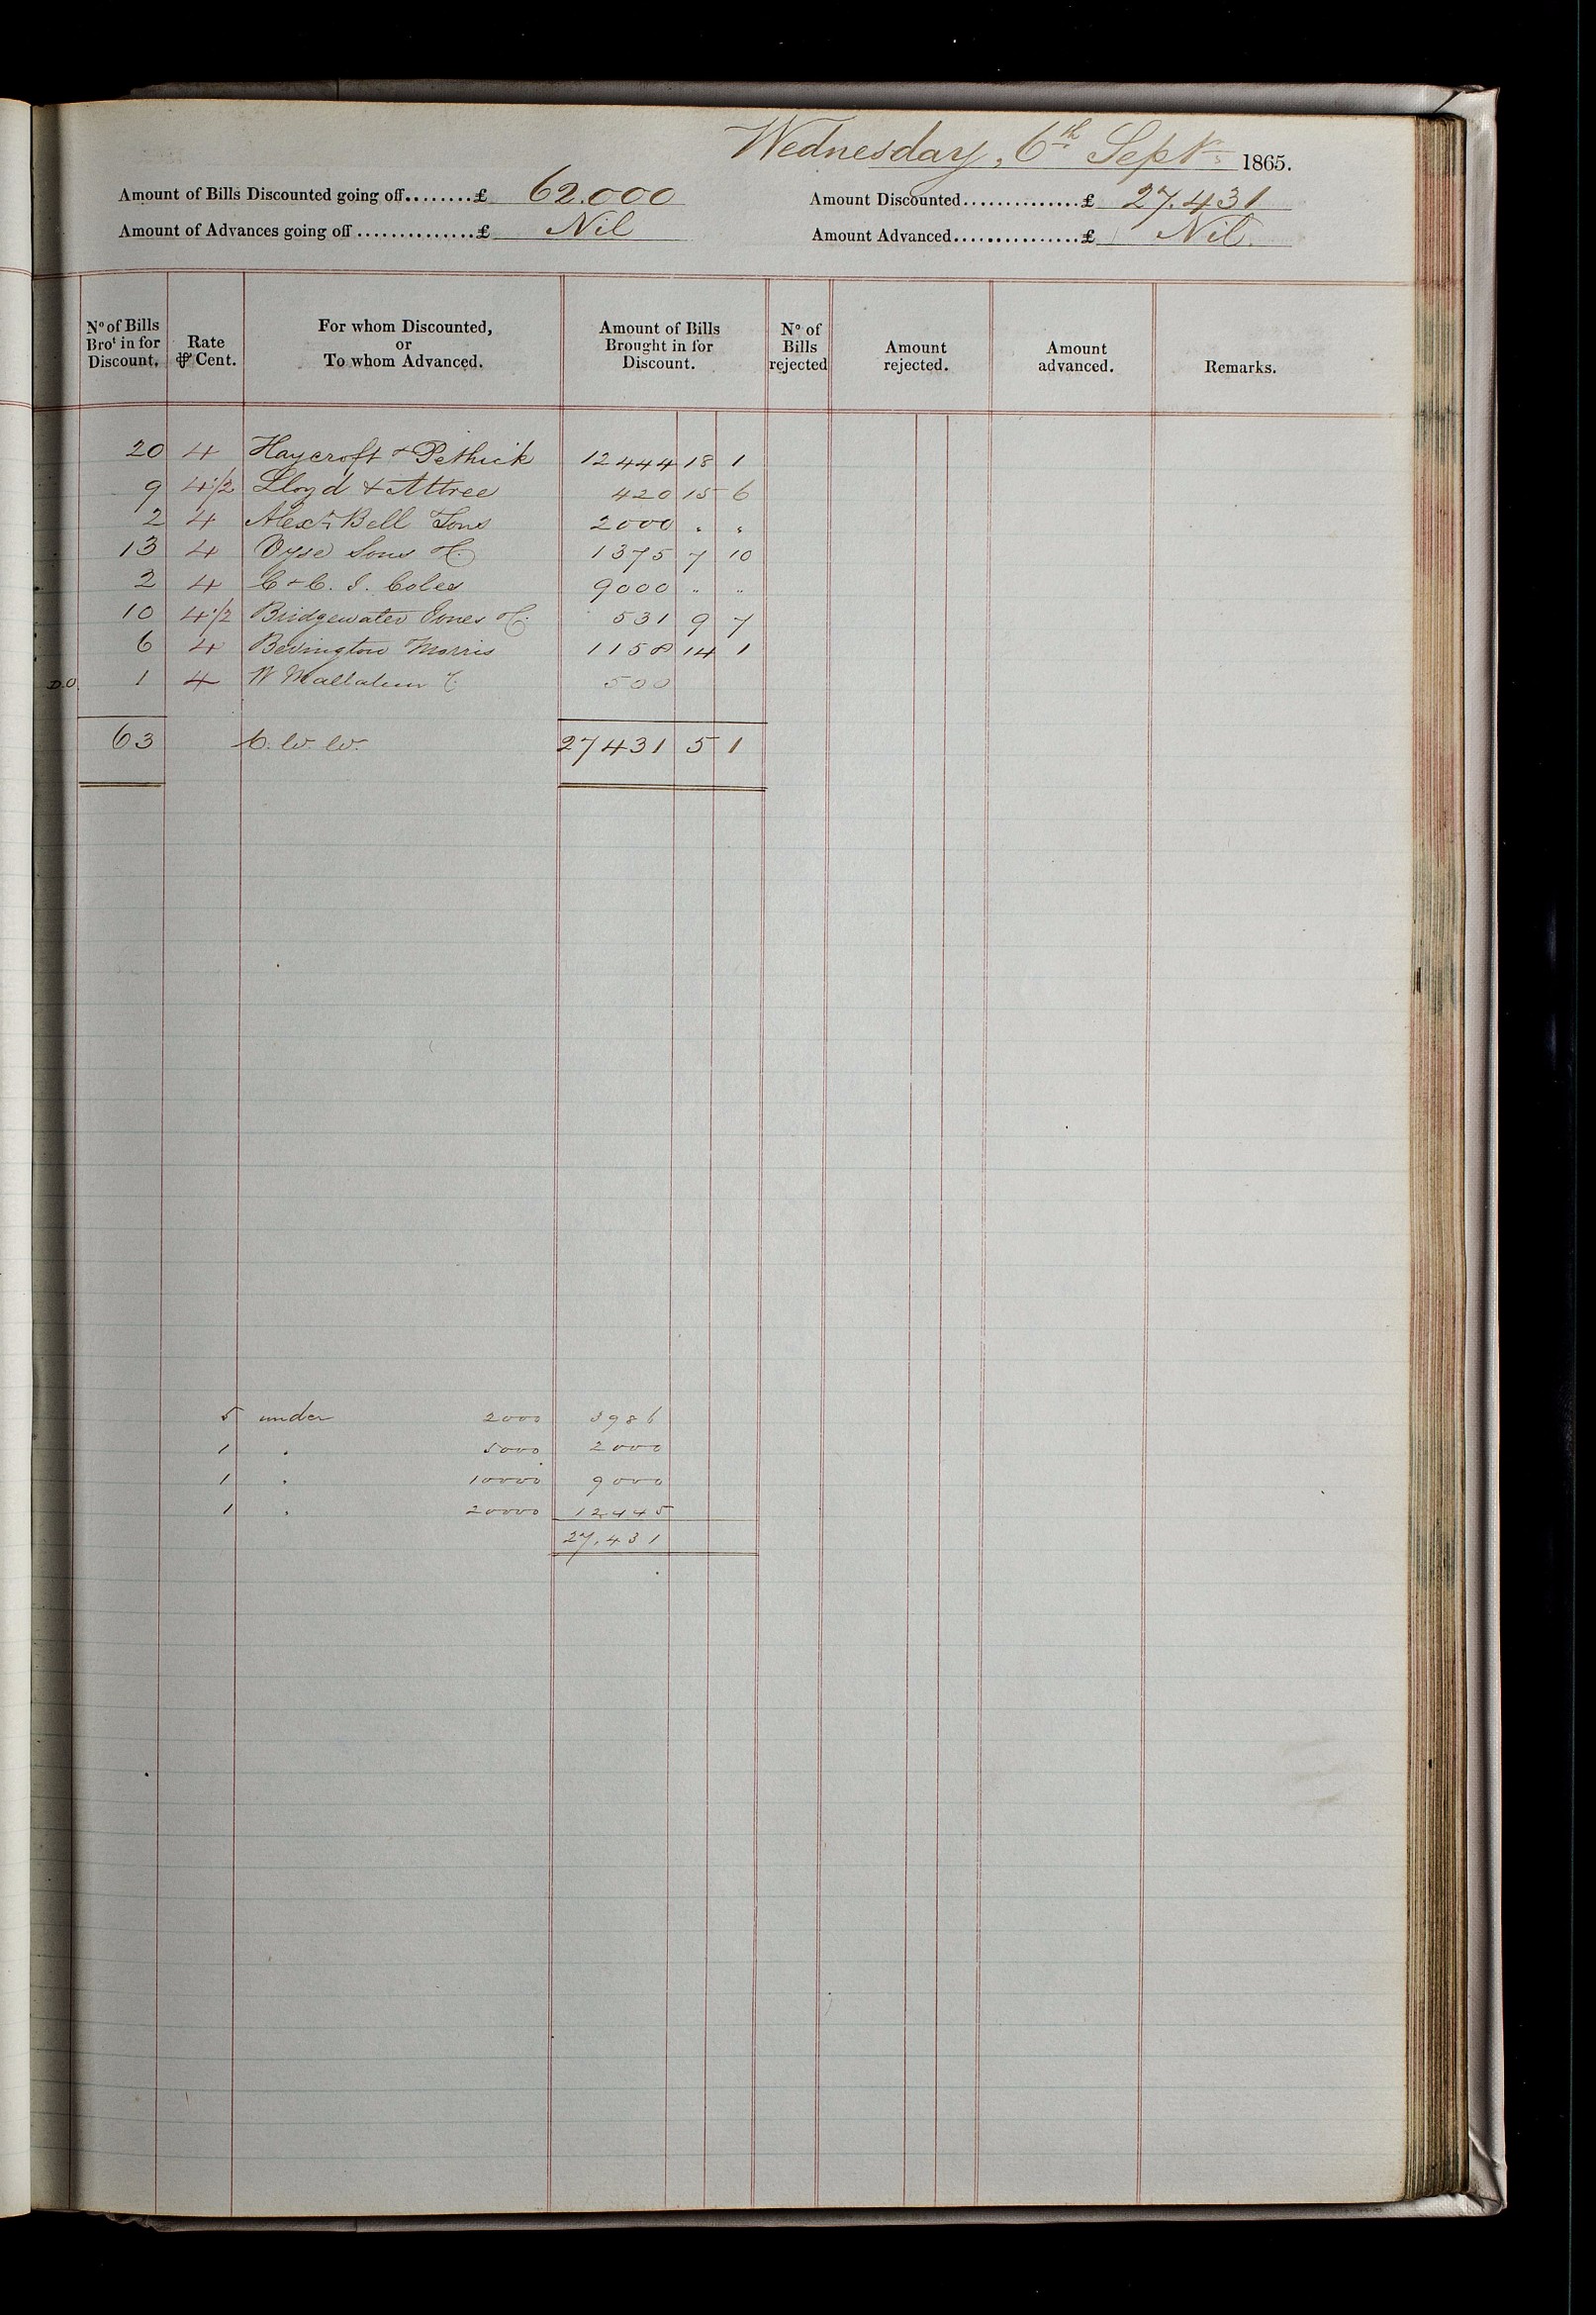 Wednesday, 6th Septr 1865.
Amount of Bills Discounted going off........£ 62.000 Amount Discounted..............£ 27.431
Amount of Advances going off..............£ Nil Amount Advanced...............£ Nil
No of Bills Brot in for Discount. Rate ⅌ Cent. For whom Discounted, or To whom Advanced. Amount of Bills Brought in for Discount. No of Bills rejected Amount rejected. Amount advanced. Remarks.
20 4 Haycroft & Pethick 12444 18 1
9 4 1/2 Lloyd & Attree 420 15 6
2 4 Alexr Bell Sons 2000 " "
13 4 Vyse Sons & C. 1375 7 10
2 4 C & C. J. Coles 9000 " "
10 4 1/2 Bridgewater Jones & C. 531 9 7
6 4 Bevington Morris 1158 14 1
D.O. 1 4 W 500
63 C. W. W. 27431 5 1
5 under 2000 3986
1 " 5000 2000
1 " 10000 9000
1 " 20000 12.445
27.431